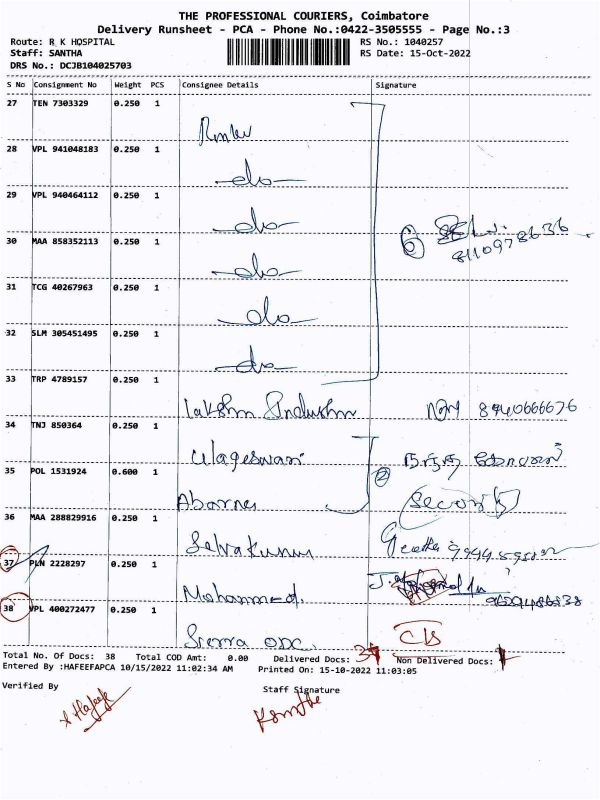 THE PROFESSIONAL COURIERS, Coimbatore
Delivery Runsheet - PCA - Phone No.:0422-3505555 - Page No.:3
Route: R K HOSPITAL RS No.: 1040257
Staff: SANTHA RS Date: 15-Oct-2022
DRS No.: DCJB104025703
S No Consignment No Weight PCS Consignee Details Signature
27 TEN 7303329 0.250 1
28 VPL 941048183 0.250 1
do
29 VPL 940464112 0.250 1
do
8110978636
30 MAA 858352113 0.250 1
6
do
31 TCG 40267963 0.250 1
do
32 SLM 305451495 0.250 1
do
33 TRP 4789157 0.250 1
Lakshmi 8940666676
34 TNJ 850364 0.250 1
Ulageswari
35 POL 1531924 0.600 1
2
Abarna Security
36 MAA 288829916 0.250 1
Selvakumar Geetha
37 PLN 2228297 0.250 1
Mohammed
38 VPL 400272477 0.250 1
Sierra ODC
Total No. Of Docs: 38 Total COD Amt: 0.00 Delivered Docs: 37 Non Delivered Docs: 1
Entered By :HAFEEFAPCA 10/15/2022 11:02:34 AM Printed On: 15-10-2022 11:03:05
Verified By Staff Signature